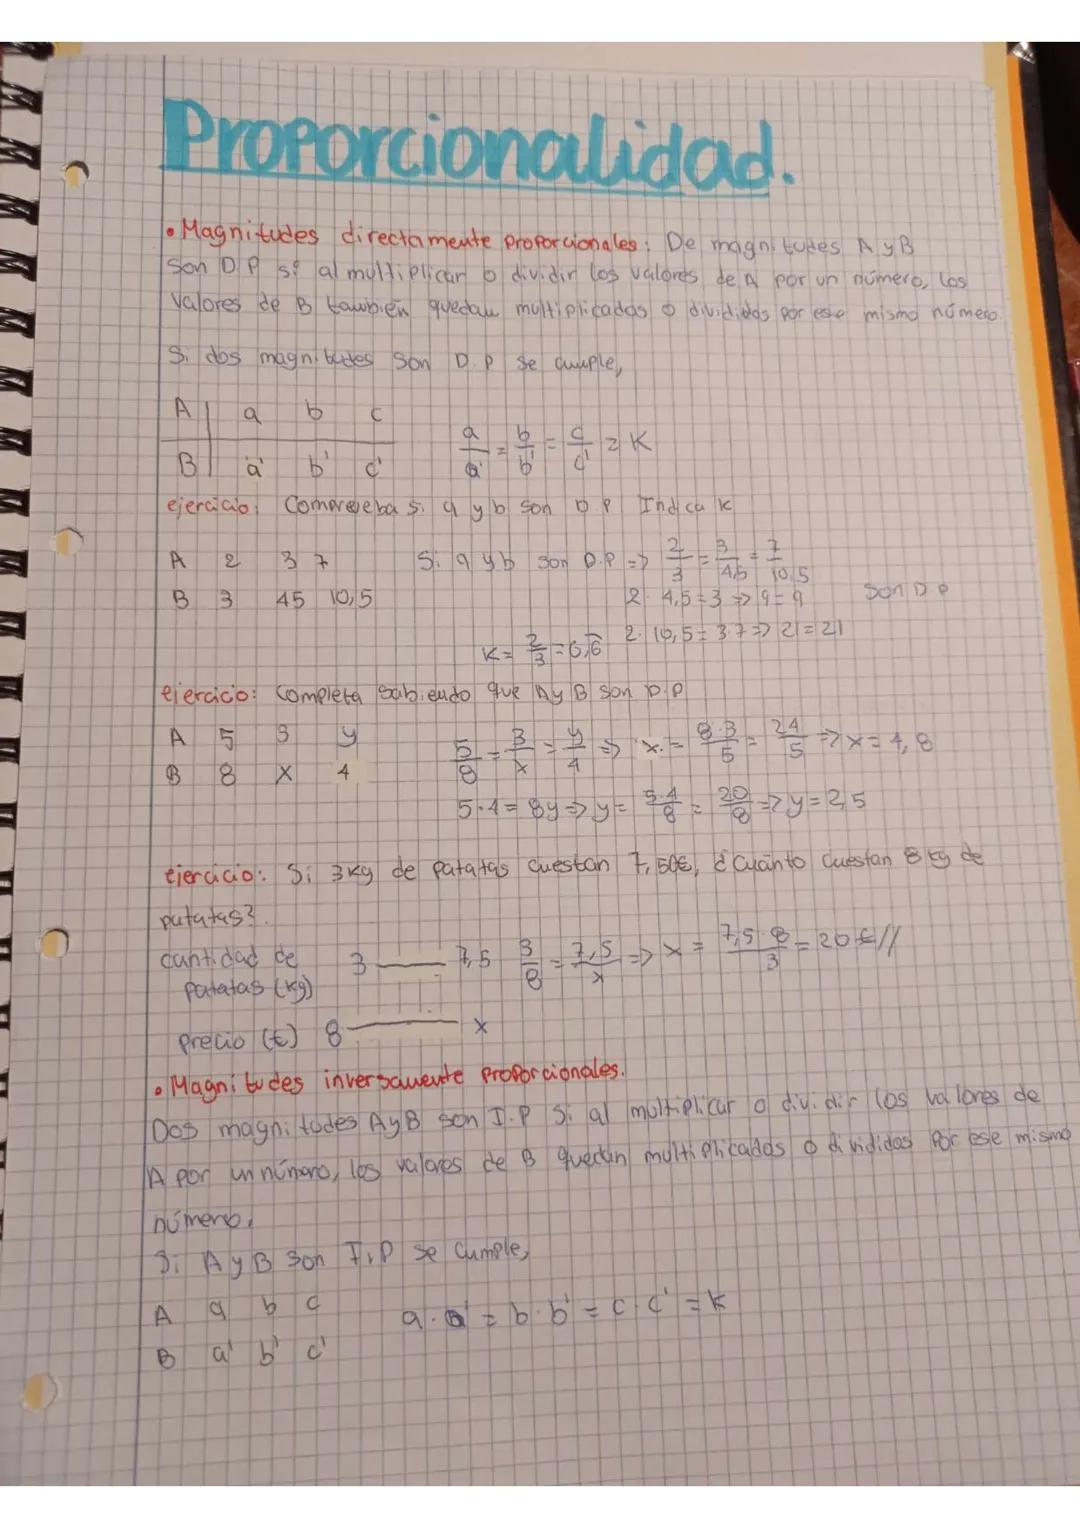 Proporcionalidad.
• Magnitudes directamente proporcionales: De magnitudes A y B
son D.P si al multiplicar o dividir los valores de A por un número, los
valores de B también quedan multiplicados o divididos por ese mismo número.
Si dos magnitudes son D.P se cumple,
A | a b c
B | a' b' c'
a/a' = b/b' = c/c' = K
ejercicio: Comprueba si a y b son D P Indica K
A 2 3 7 Si a y b son D.P => 2/3 = 3/4,5 = 7/10,5
B 3 45 10,5 2· 4,5=3 => 9=9 son D P
K= 2/3 = 0,6̅ 2· 10,5= 3·7 => 21=21
ejercicio: Completa sabiendo que A y B son D.P
A 5 3 y 5/8 = 3/x = y/4 => x = 8·3/5 = 24/5 => x= 4,8
B 8 x 4
5·4= 8y => y= 5·4/8 = 20/8 => y=2,5
ejercicio: Si 3kg de patatas cuestan 7,50€, ¿Cuánto cuestan 8 kg de
patatas?.
cantidad de 3 —— 7,5 3/8 = 7,5/x => x = 7,5·8/3 = 20€//
patatas (kg)
precio (€) 8 —— x
• Magnitudes inversamente proporcionales.
Dos magnitudes A y B son I.P si al multiplicar o dividir los valores de
A por un número, los valores de B quedan multiplicados o divididos por ese mismo
número.
Si A y B son I.P se cumple,
A a b c a·a' = b·b' = c·c' = K
B a' b' c'